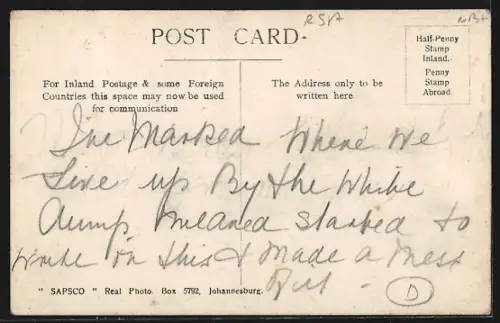 RSA
POST CARD-
Half-Penny
Stamp
Inland.
Penny
Stamp
Abroad.
For Inland Postage & some Foreign
Countries this space may now be used
for communication
The Address only to be
written here
I've Marked Where We
Live up By the White
dump started to
write on this & Made a Mess
" SAPSCO " Real Photo. Box 5792, Johannesburg.
D